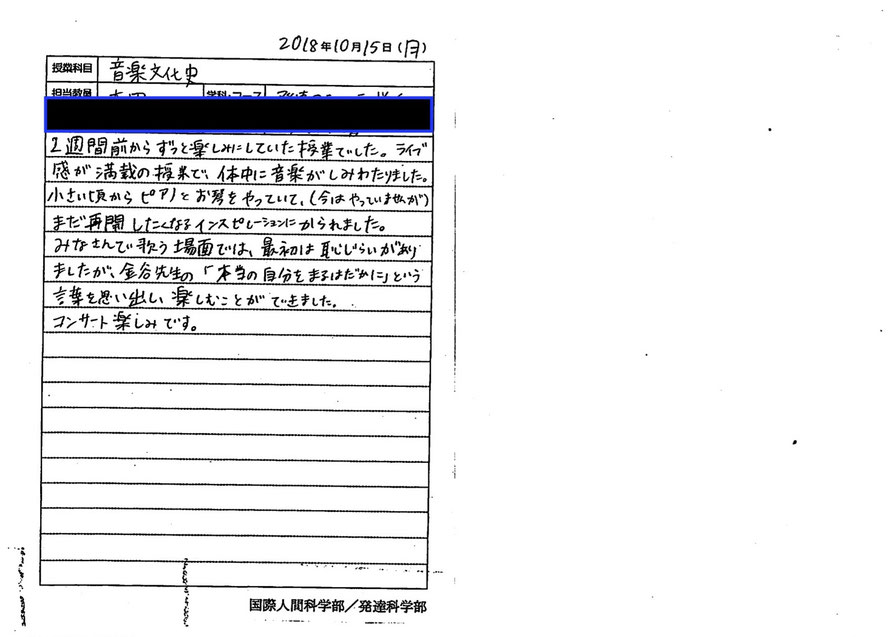 2018年10月15日(月)
授業科目 音楽文化史
担当教員 学科・コース
2週間前からずっと楽しみにしていた授業でした。ライブ
感が満載の授業で、体中に音楽がしみわたりました。
小さい頃からピアノとお琴をやっていて、(今はやっていませんが)
まだ再開したくなるインスピレーションにかられました。
みなさんで歌う場面では、最初は恥じらいがあり
ましたが、金谷先生の「本当の自分をまるはだかに」という
言葉を思い出し、楽しむことができました。
コンサート楽しみです。
国際人間科学部/発達科学部